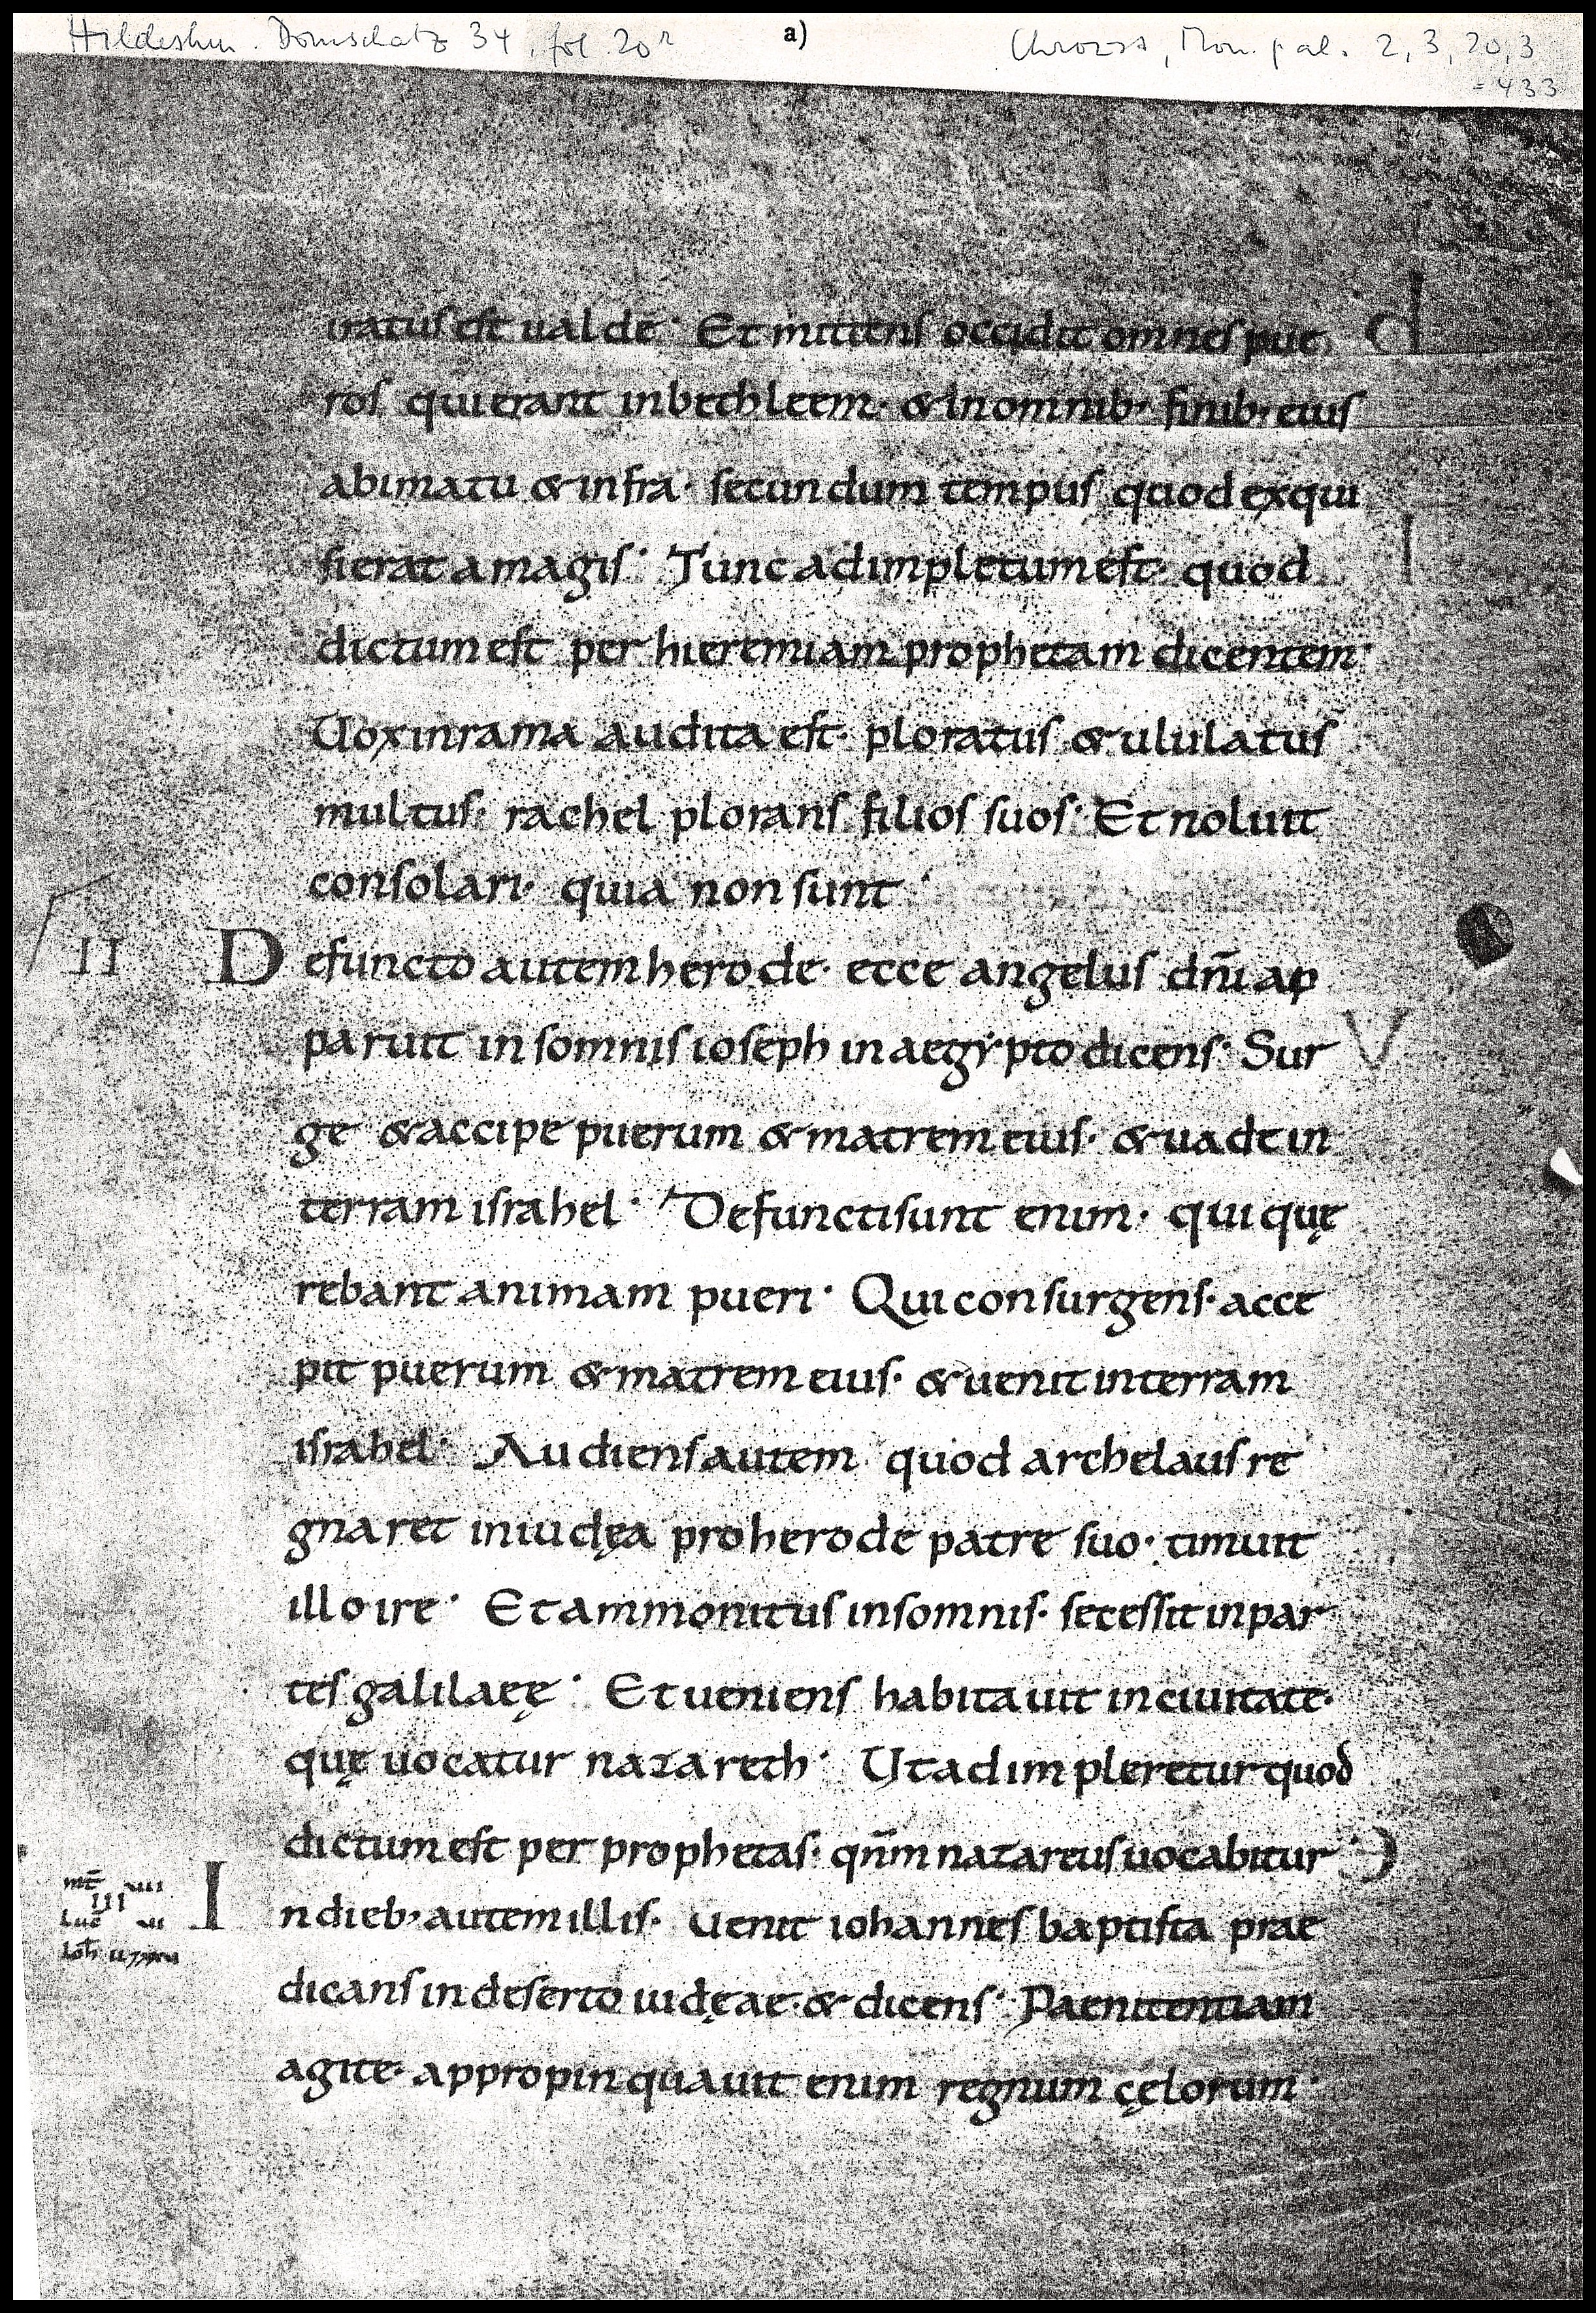 Hildeshm. Domschatz 34, fol. 20r
a)
Chroust, Mon. pal. 2, 3, 20, 3
= 433
iratus est ualde· Et mittens occidit omnes pue
ros qui erant in bethleem· & in omnib; finib; eius
a bimatu & infra· secundum tempus quod exqui
sierat a magis· Tunc adimpletum est· quod
dictum est per hieremiam prophetam dicentem·
Uox in rama audita est· ploratus & ululatus
multus· rachel plorans filios suos· Et noluit
consolari· quia non sunt·
II
Defuncto autem herode· ecce angelus dn̄i ap
paruit in somnis ioseph in aegẏpto dicens· Sur
ge & accipe puerum & matrem eius· & uade in
terram israhel· Defuncti sunt enim· qui quę
rebant animam pueri· Qui consurgens· acce
pit puerum & matrem eius· & uenit in terram
israhel· Audiens autem quod archelaus re
gnaret in iudęa pro herode patre suo· timuit
illo ire· Et ammonitus in somnis· secessit in par
tes galilaeę· Et ueniens habitauit in ciuitate·
quę uocatur nazareth· Ut adimpleretur quod
dictum est per prophetas· qn̄m nazareus uocabitur·
In dieb; autem illis· uenit iohannes baptista prae
dicans in deserto iudęae· & dicens· Paenitentiam
agite· appropinquauit enim regnum cęlorum·